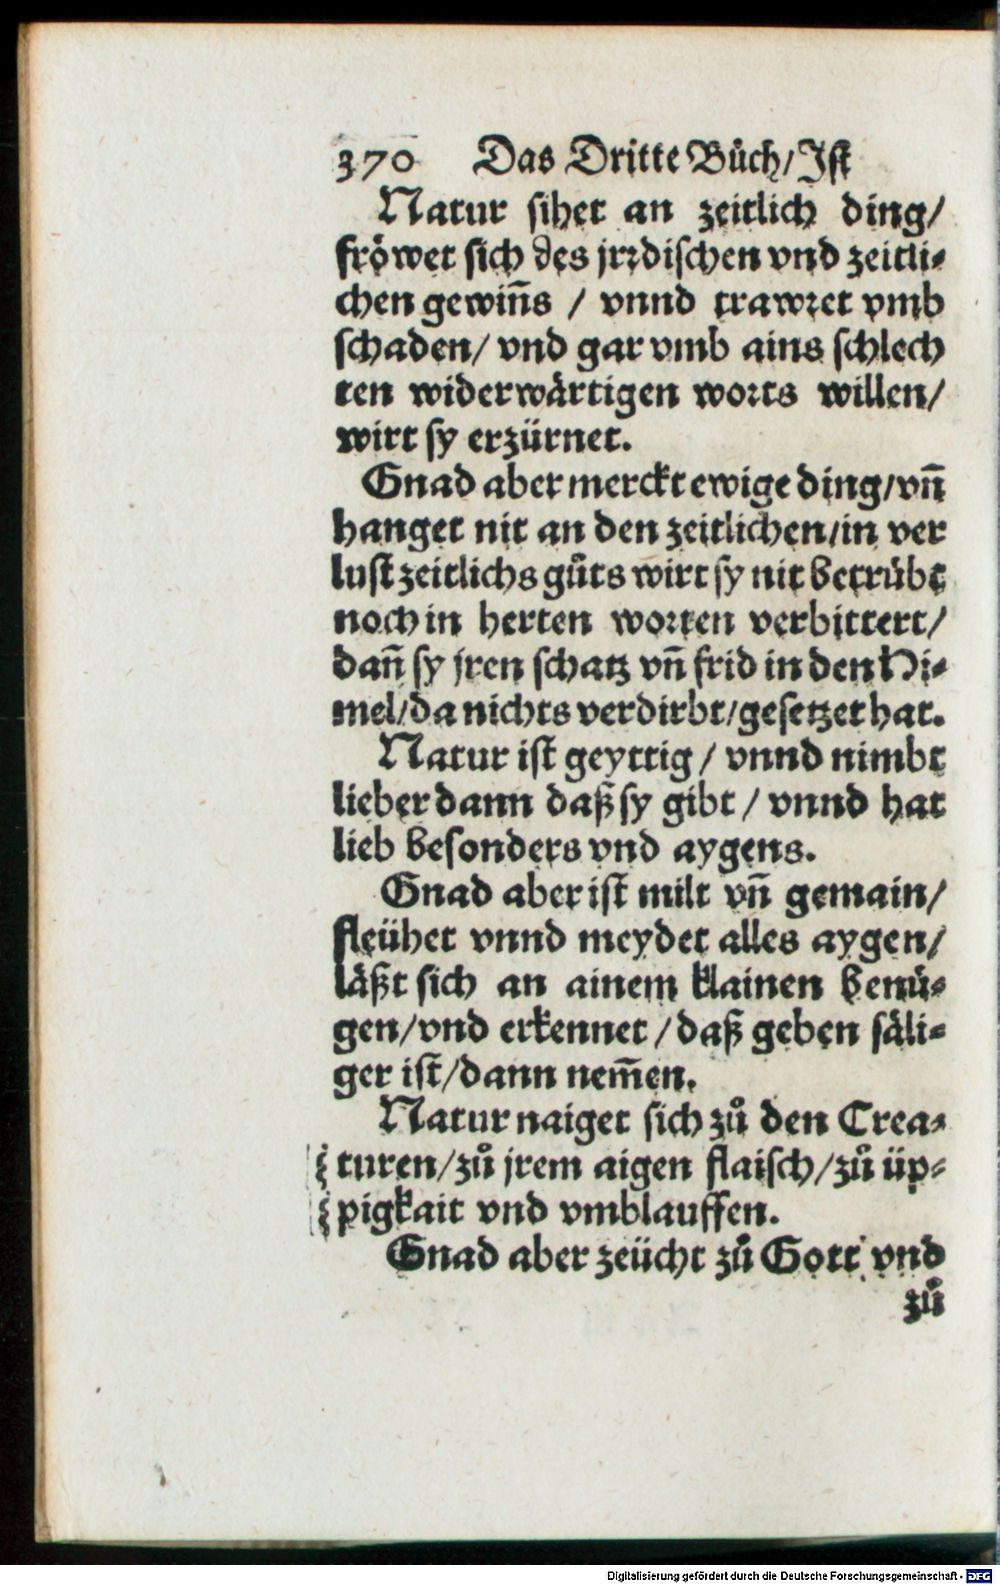 370 Das Dritte Bůch/ Ist
Natur sihet an zeitlich ding/
fröwet sich des jrꝛdischen vnd zeitli⸗
chen gewiñs / vnnd trawꝛet vmb
schaden/ vnd gar vmb ains schlech
ten widerwärtigen woꝛts willen/
wirt sy erzürnet.
Gnad aber merckt ewige ding/vñ
hanget nit an den zeitlichen/in ver
lust zeitlichs gůts wirt sy nit betrübt
noch in herten woꝛten verbittert/
dañ sy jren schatz vñ frid in den Hi⸗
mel/da nichts verdirbt/gesetzet hat.
Natur ist geyttig / vnnd nimbt
lieber dann daß sy gibt / vnnd hat
lieb besonders vnd aygens.
Gnad aber ist milt vñ gemain/
fleühet vnnd meydet alles aygen/
läßt sich an ainem klainen benü⸗
gen/vnd erkennet / daß geben säli⸗
ger ist/dann nem̃en.
Natur naiget sich zů den Crea⸗
turen/zů jrem aigen flaisch/zů üp⸗
pigkait vnd vmblauffen.
Gnad aber zeücht zů Gott vnd
zů
Digitalisierung gefördert durch die Deutsche Forschungsgemeinschaft - DFG